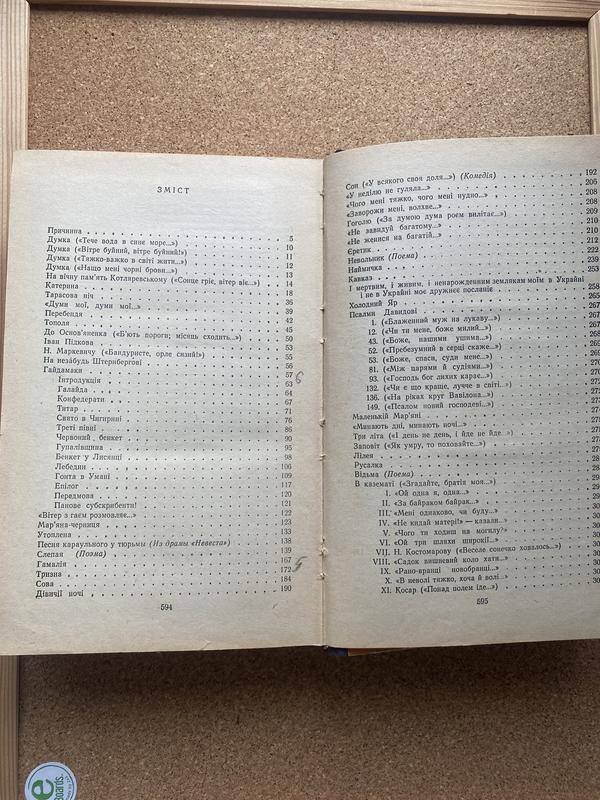 ЗМІСТ
Причинна 5
Думка («Тече вода в синє море...») 10
Думка («Вітре буйний, вітре буйний!») 11
Думка («Тяжко-важко в світі жити...») 12
Думка («Нащо мені чорні брови...») 13
На вічну пам'ять Котляревському («Сонце гріє, вітер віє...») 14
Катерина 18
Тарасова ніч 36
«Думи мої, думи мої...» 39
Перебендя 42
Тополя 45
До Основ'яненка («Б'ють пороги; місяць сходить...») 50
Іван Підкова 53
Н. Маркевичу («Бандуристе, орле сизий!») 55
На незабудь Штернбергові 56
Гайдамаки 57
6
Інтродукція 63
Галайда 64
Конфедерати 67
Титар 71
Свято в Чигирині 76
Треті півні 86
Червоний бенкет 90
Гупалівщина 95
Бенкет у Лисянці 98
Лебедин 106
Гонта в Умані 109
Епілог 117
Передмова 120
Панове субскрибенти! 121
«Вітер з гаєм розмовляє...» 122
Мар'яна-черниця 123
Утоплена 133
Песня караульного у тюрьмы (Из драмы «Невеста») 138
Слепая (Поэма) 139
Гамалія 167
5
Тризна 172
Сова 184
Дівичії ночі 190
594
Сон («У всякого своя доля...») (Комедія) 192
«У неділю не гуляла...» 206
«Чого мені тяжко, чого мені нудно...» 208
«Заворожи мені, волхве...» 208
Гоголю («За думою дума роєм вилітає...») 209
«Не завидуй багатому...» 210
«Не женися на багатій...» 210
Єретик 212
Невольник (Поема) 222
Наймичка 239
Кавказ 253
І мертвим, і живим, і ненарожденним землякам моїм в Україні
і не в Україні моє дружнєє посланіє 258
Холодний Яр 265
Псалми Давидові 267
1. («Блаженний муж на лукаву...») 267
12. («Чи ти мене, боже милий...») 267
43. («Боже, нашими ушима...»)
52. («Пребезумний в серці скаже...»)
53. («Боже, спаси, суди мене...»)
81. («Між царями й судіями...»)
93. («Господь бог лихих карає...»)
132. («Чи є що краще, лучче в світі...»)
136. («На ріках круг Вавілона...»)
149. («Псалом новий господеві...»)
Маленькій Мар'яні
«Минають дні, минають ночі...»
Три літа («І день не день, і йде не йде...»)
Заповіт («Як умру, то поховайте...»)
Лілея
Русалка
Відьма (Поема)
В казематі («Згадайте, братія моя...»)
I. «Ой одна я, одна...»
II. «За байраком байрак...»
III. «Мені однаково, чи буду...»
IV. «Не кидай матері! — казали...»
V. «Чого ти ходиш на могилу?»
VI. «Ой три шляхи широкії...»
VII. Н. Костомарову («Веселе сонечко ховалось...»)
VIII. «Садок вишневий коло хати...»
IX. «Рано-вранці новобранці...»
X. «В неволі тяжко, хоча й волі...»
XI. Косар («Понад полем іде...»)
595
e
Boards.